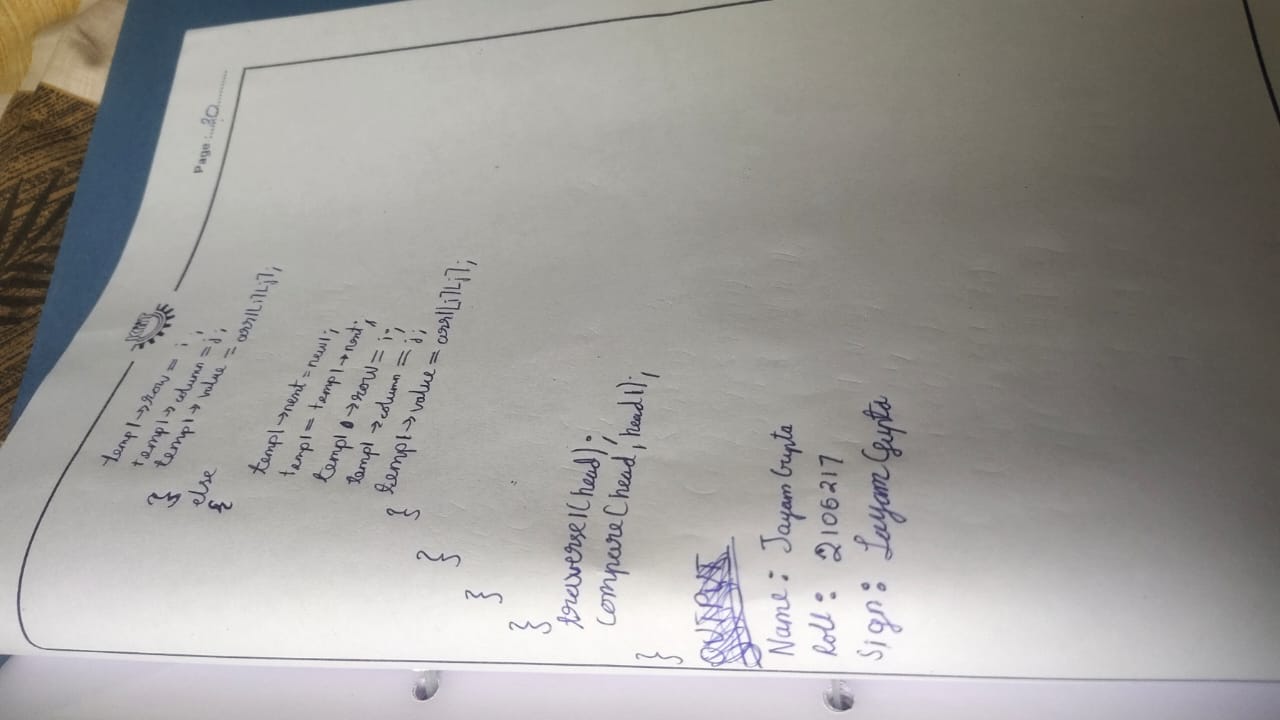 KIIT
Page :....20..........
temp1->row = i;
temp1->column = j;
temp1->value = arr1[i][j];
}
else
{
temp1->next = new1;
temp1 = temp1->next;
temp1->row = i;
temp1->column = j;
temp1->value = arr1[i][j];
}
}
}
}
traverse1(head);
compare(head, head1);
}
OUTPUT
Name: Jayam Gupta
Roll: 2106217
Sign: Jayam Gupta